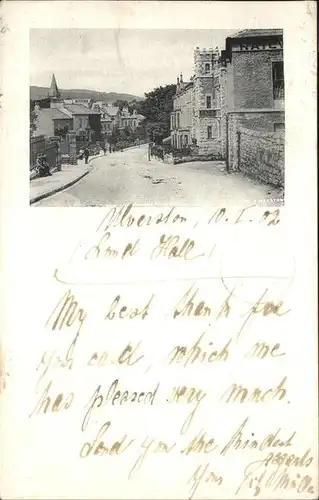 Ulverston, 10. I. 02
(Lund Hall)
My best thank for
your card, which me
has pleased very much.
Send you the kindest
Yours